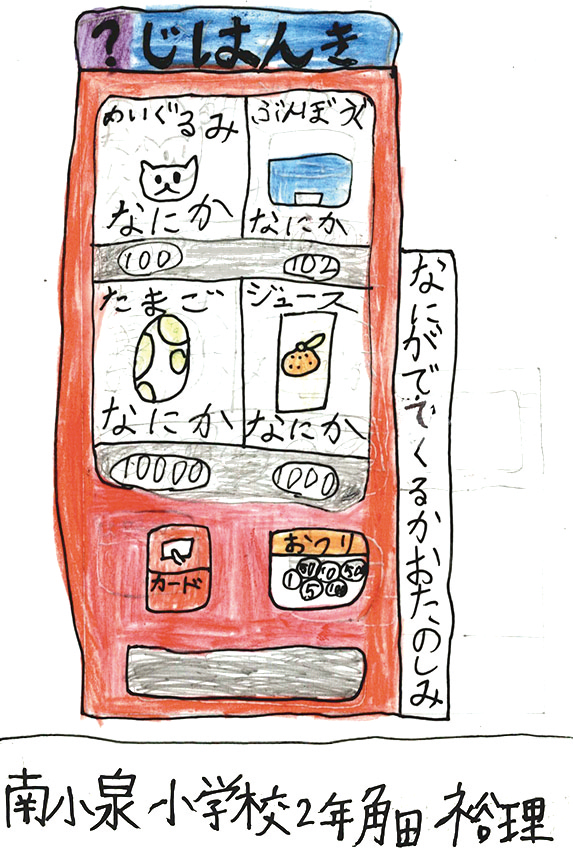 ?じはんき
ぬいぐるみ
なにか
100
ぶんぼうぐ
なにか
102
たまご
なにか
10000
ジュース
なにか
1000
カード
おつり
50 10 500
1 5 100
なにがでてくるかおたのしみ
南小泉小学校2年角田裕理